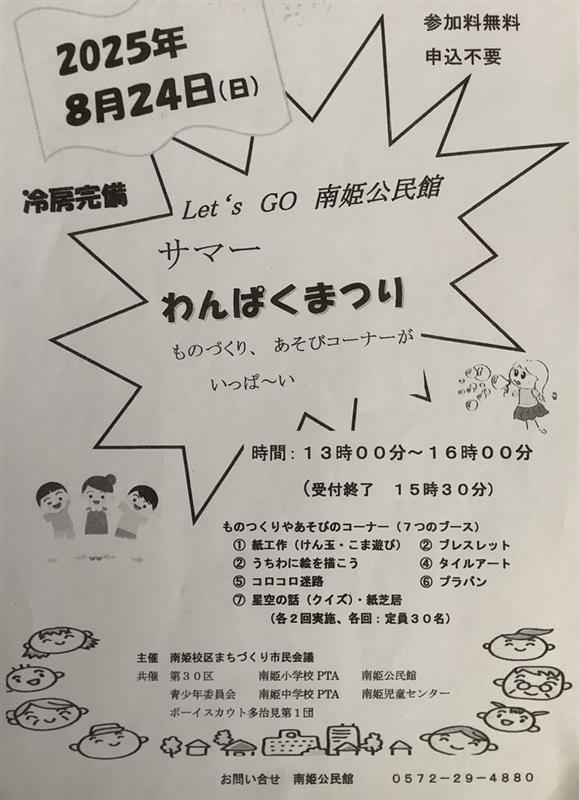 2025年
8月24日(日)
参加料無料
申込不要
冷房完備
Let‘s GO 南姫公民館
サマー
わんぱくまつり
ものづくり、あそびコーナーが
いっぱ～い
時間：13時00分～16時00分
(受付終了 15時30分)
ものつくりやあそびのコーナー（7つのブース）
① 紙工作（けん玉・こま遊び） ② ブレスレット
② うちわに絵を描こう ④ タイルアート
⑤ コロコロ迷路 ⑥ プラバン
⑦ 星空の話（クイズ）・紙芝居
（各2回実施、各回：定員30名）
主催 南姫校区まちづくり市民会議
共催 第30区 南姫小学校PTA 南姫公民館
青少年委員会 南姫中学校PTA 南姫児童センター
ボーイスカウト多治見第1団
お問い合せ 南姫公民館 0572-29-4880